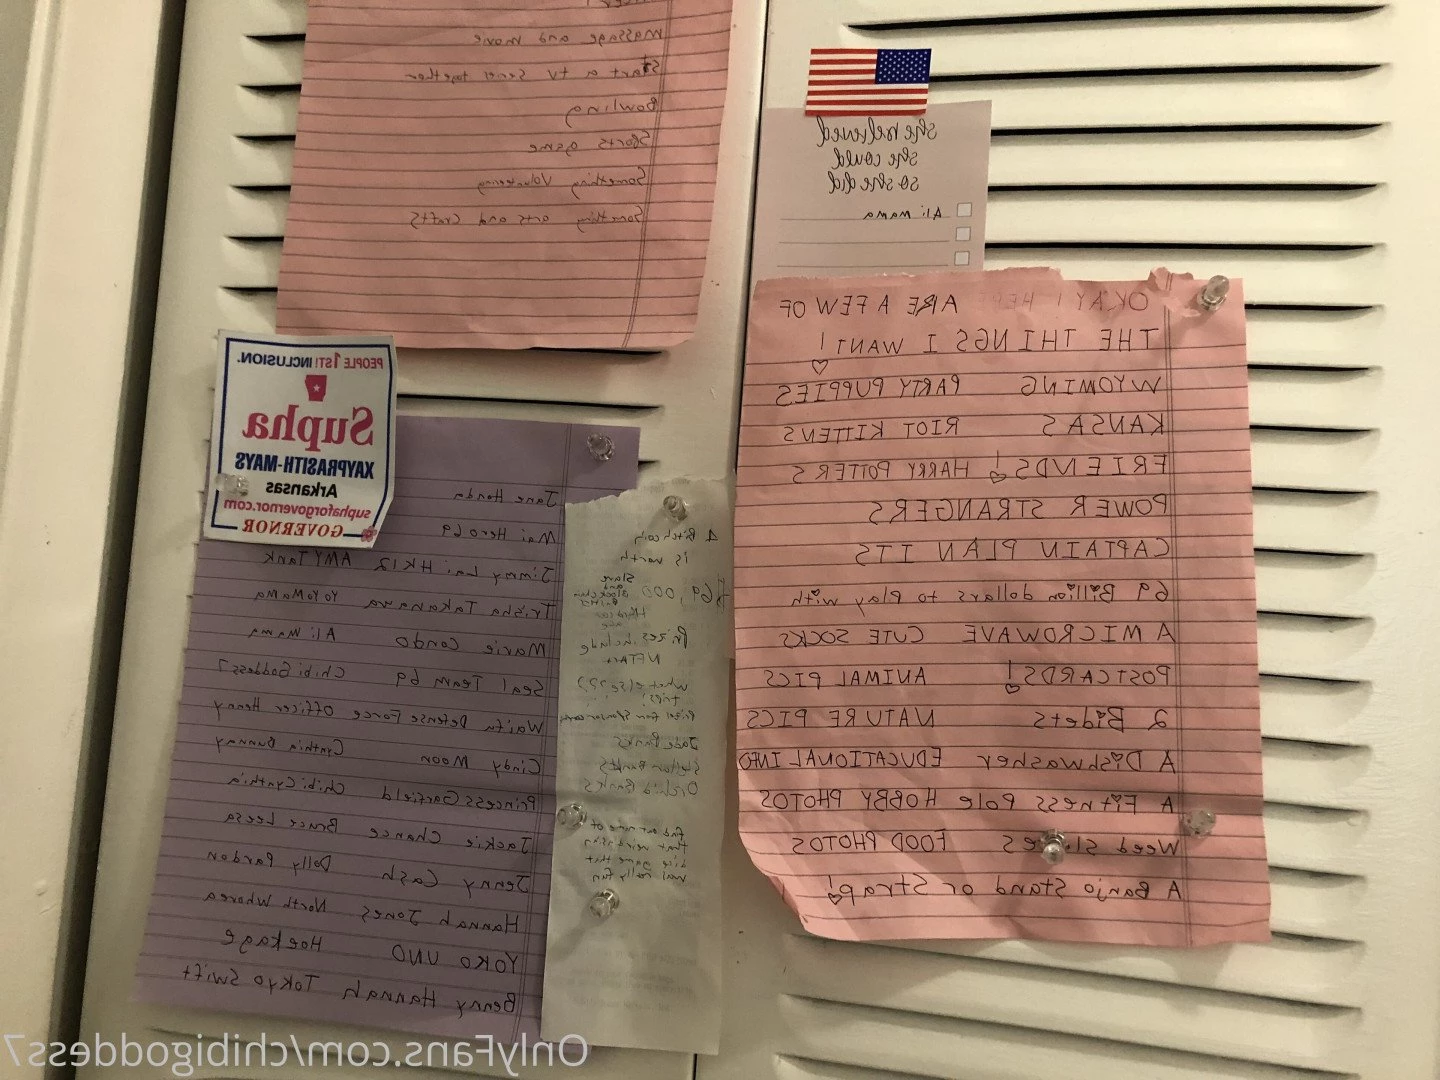 massage and movie
Start a tv series together
Bowling
Sports game
Something Volunteering
Something arts and crafts
she believed
she could
so she did
Ali mama
OKAY! HERE ARE A FEW OF
THE THINGS I WANT!
WYOMING PARTY PUPPIES
KANSAS RIOT KITTENS
FRIENDS! HARRY POTTERS
POWER STRANGERS
CAPTAIN PLAN ITS
69 Billion dollars to play with
A MICROWAVE CUTE SOCKS
POSTCARDS! ANIMAL PICS
2 Bidets NATURE PICS
A Dishwasher EDUCATIONAL INFO
A Fitness Pole HOBBY PHOTOS
Weed FOOD PHOTOS
A Banjo Stand or Strap!
PEOPLE 1ST! INCLUSION.
Supha
XAYPRASITH-MAYS
Arkansas
suphaforgovernor.com
GOVERNOR
Jane Honda
Mai Hero 69
Jimmy Lai HK12 AMY Tank
Trisha Takanawa YoYoMaMa
Marie Condo Ali Mama
Seal Team 69 Chibi Goddess7
Waifu Defense Force Officer Henny
Cindy Moon Cynthia Bunnay
Princess Garfield Chibi Cynthia
Jackie Chance Bruce Leesa
Jenny Cash Dolly Pardon
Hannah Jones North Whorea
YOKO UNO Hoekage
Benny Hannah Tokyo Swift
A Bitchcoin
is worth
$69,000
Prizes include
NFTArt
what else???
trips!
Prizes from Sponsor
Jade Banks
Skelton Banks
Orchid Banks
find out more of
that
game that
was really fun
OnlyFans.com/chibigoddess7